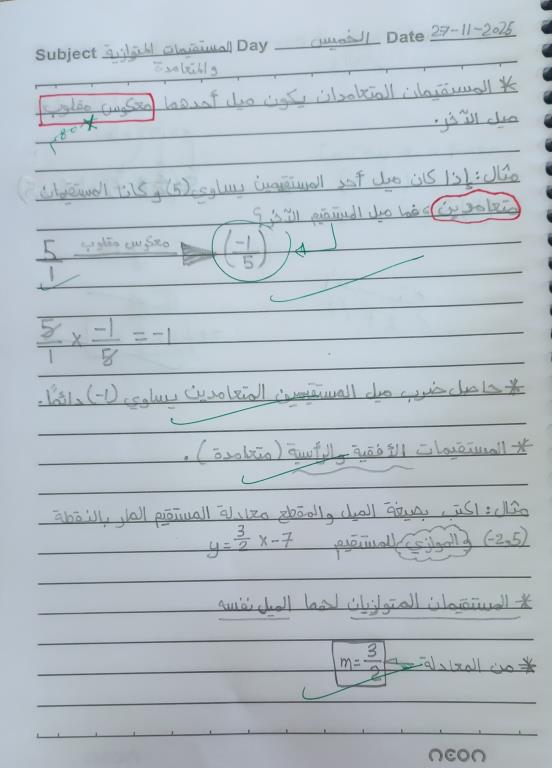 Subject المستقيمات المتوازية Day الخميس Date 27-11-2025
والمتعامدة
* المستقيمان المتعامدان يكون ميل أحدهما معكوس مقلوب
ميل الآخر.
مثال: إذا كان ميل أحد المستقيمين يساوي (5) وكانا المستقيمان
متعامدين، فما ميل المستقيم الآخر؟
5/1 معكوس مقلوب (-1/5)
5/1 × -1/5 = -1
* حاصل ضرب ميل المستقيمين المتعامدين يساوي (-1) دائمًا.
* المستقيمات الأفقية والرأسية (متعامدة).
مثال: اكتب بصيغة الميل والمقطع معادلة المستقيم المار بالنقطة
(-2,5) والموازي للمستقيم y = 3/2 x - 7
* المستقيمان المتوازيان لهما الميل نفسه
* من المعادلة m = 3/2
neon